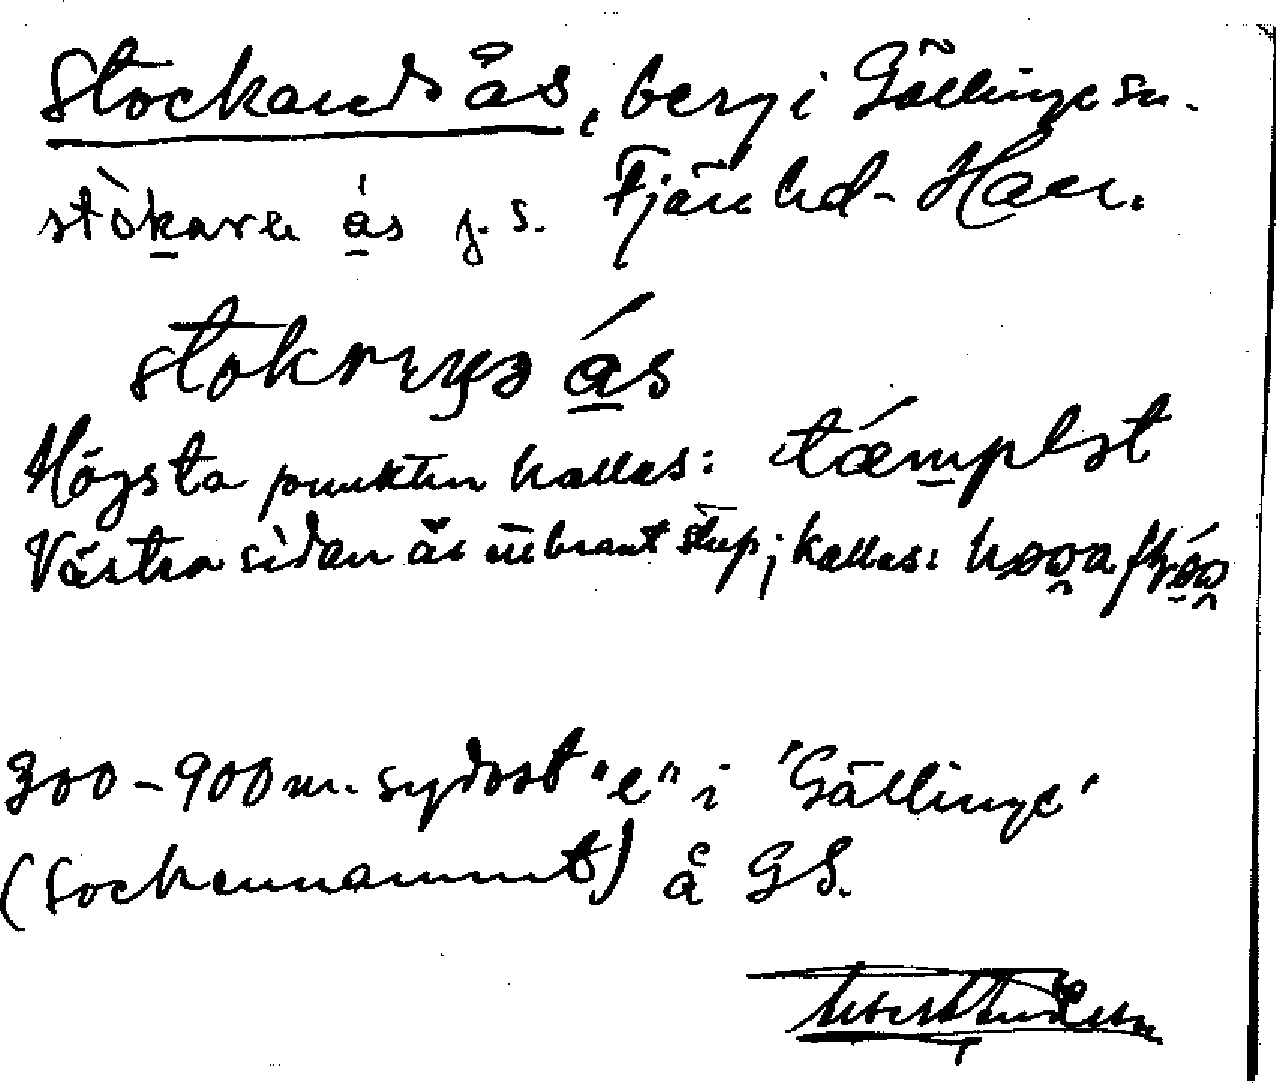 Stockands ås, berg i Gällinge sn.
stòkaren ás j. s. Fjäre hd - Hall.
ás
Högsta punkten kallas: támplət
Västra sidan är en brant stup; kallas:
300-900 m. sydost "e" i 'Gällinge'
(sockennamnet) å GS.